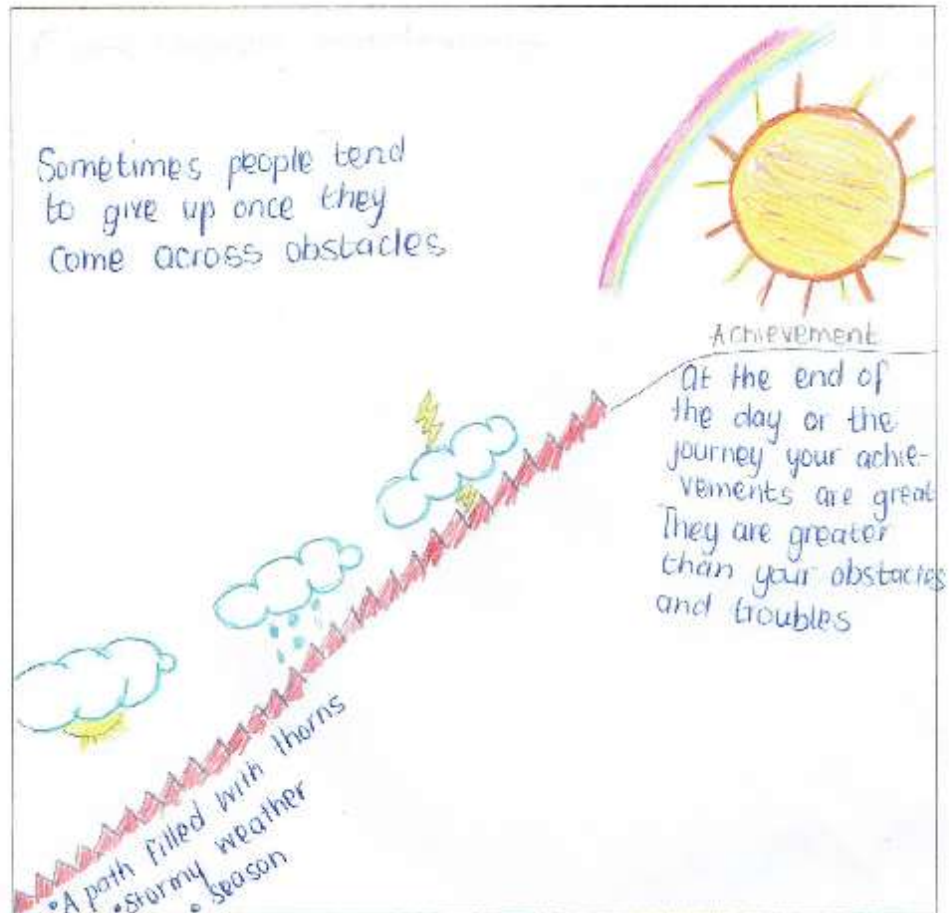 Sometimes people tend
to give up once they
come across obstacles
Achievement
at the end of
the day or the
journey your achie-
vements are great
They are greater
than your obstacles
and troubles
• A path filled with thorns
• stormy weather
• season